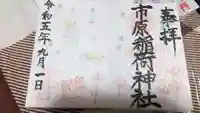 奉拝
市原稲荷神社
令和五年九月一日